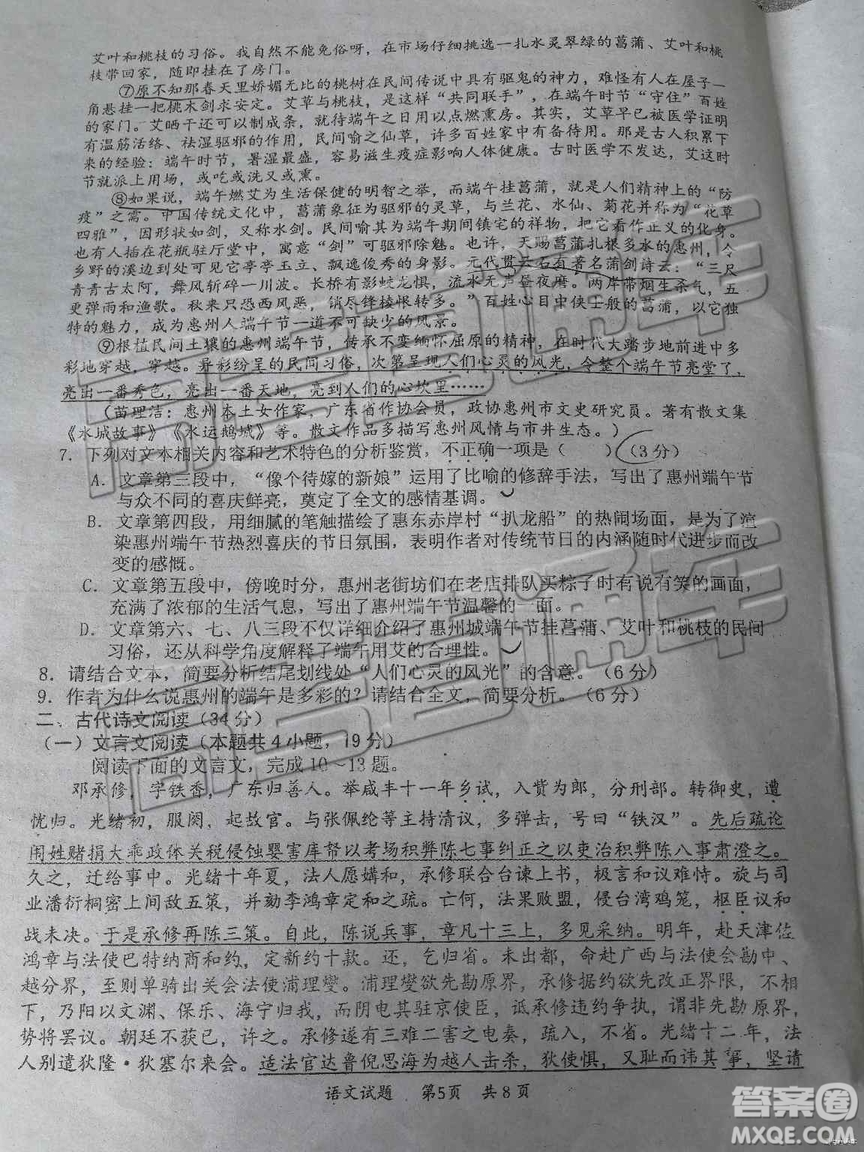 艾叶和桃枝的习俗。我自然不能免俗呀，在市场仔细挑选一扎水灵翠绿的菖蒲、艾叶和桃
枝带回家，随即挂在了房门。
⑦原不知那春天里娇媚无比的桃树在民间传说中具有驱鬼的神力，难怪有人在屋子一
角悬挂一把桃木剑求安定。艾草与桃枝，是这样“共同联手”，在端午时节“守住”百姓
的家门。艾晒干还可以制成条，就待端午之日用以点燃熏房。其实，艾草早已被医学证明
有温筋活络、祛湿驱邪的作用，民间喻之仙草，许多百姓家中有备待用。那是古人积累下
来的经验：端午时节，暑湿最盛，容易滋生疫症影响人体健康。古时医学不发达，艾这时
节就派上用场，或吃或洗又或熏。
⑧如果说，端午燃艾为生活保健的明智之举，而端午挂菖蒲，就是人们精神上的“防
疫”之需。中国传统文化中，菖蒲象征为驱邪的灵草，与兰花、水仙、菊花并称为“花草
四雅”，因形状如剑，又称水剑。民间喻其为端午期间镇宅的祥物，把它看作正义的化身。
也有人插在花瓶驻厅堂中，寓意“剑”可驱邪除魅。也许，天赐菖蒲扎根多水的惠州，令
乡野的溪边到处可见它亭亭玉立、飘逸俊秀的身影。元代贯云石有著名蒲剑诗云：“三尺
青青古太阿，舞风斩碎一川波。长桥有影蛟龙惧，流水无声昼夜磨。两岸带烟生杀气，五
更弹雨和渔歌。秋来只恐西风恶，销尽锋棱恨转多。”百姓心目中侠士般的菖蒲，以它独
特的魅力，成为惠州人端午节一道不可缺少的风景。
⑨根植民间土壤的惠州端午节，传承不变缅怀屈原的精神，在时代大踏步地前进中多
彩地穿越，穿越。异彩纷呈的民间习俗，次第呈现人们心灵的风光，令整个端午节亮堂了，
亮出一番秀色，亮出一番天地，亮到人们的心坎里……
（苗理洁：惠州本土女作家，广东省作协会员，政协惠州市文史研究员。著有散文集
《水城故事》《水运鹅城》等。散文作品多描写惠州风情与市井生态。）
7．下列对文本相关内容和艺术特色的分析鉴赏，不正确一项是（　　）（3分）
A．文章第三段中，“像个待嫁的新娘”运用了比喻的修辞手法，写出了惠州端午节
与众不同的喜庆鲜亮，奠定了全文的感情基调。
B．文章第四段，用细腻的笔触描绘了惠东赤岸村“扒龙船”的热闹场面，是为了渲
染惠州端午节热烈喜庆的节日氛围，表明作者对传统节日的内涵随时代进步而改
变的感慨。
C．文章第五段中，傍晚时分，惠州老街坊们在老店排队买粽子时有说有笑的画面，
充满了浓郁的生活气息，写出了惠州端午节温馨的一面。
D．文章第六、七、八三段不仅详细介绍了惠州城端午节挂菖蒲、艾叶和桃枝的民间
习俗，还从科学角度解释了端午用艾的合理性。
8．请结合文本，简要分析结尾划线处“人们心灵的风光”的含意。（6分）
9．作者为什么说惠州的端午是多彩的？请结合全文，简要分析。（6分）
二、古代诗文阅读（34分）
（一）文言文阅读（本题共4小题，19分）
阅读下面的文言文，完成10～13题。
邓承修，字铁香，广东归善人。举咸丰十一年乡试，入赀为郎，分刑部。转御史，遭
忧归。光绪初，服阕，起故官。与张佩纶等主持清议，多弹击，号曰“铁汉”。先后疏论
闱姓赌捐大乖政体关税侵蚀婴害库帑以考场积弊陈七事纠正之以吏治积弊陈八事肃澄之。
久之，迁给事中。光绪十年夏，法人愿媾和，承修联合台谏上书，极言和议难恃。旋与司
业潘衍桐密上间敌五策，并劾李鸿章定和之疏。亡何，法果败盟，侵台湾鸡笼，枢臣议和
战未决。于是承修再陈三策。自此，陈说兵事，章凡十三上，多见采纳。明年，赴天津佐
鸿章与法使巴特纳商和约，定新约十款。还，乞归省。未出都，命赴广西与法使会勘中、
越分界。至则单骑出关会法使浦理燮。浦理燮欲先勘原界，承修据约欲先改正界限，不相
下，乃阳以文渊、保乐、海宁归我，而阴电其驻京使臣，诋承修违约争执，谓非先勘原界，
势将罢议。朝廷不获已，许之。承修有三难二害之电奏，疏入，不省。光绪十二年，法
人别遣狄隆·狄塞尔来会。适法官达鲁倪思海为越人击杀，狄使惧，又耻而讳其事，坚请
语文试题　第5页　共8页
答案圈
MXQE.COM